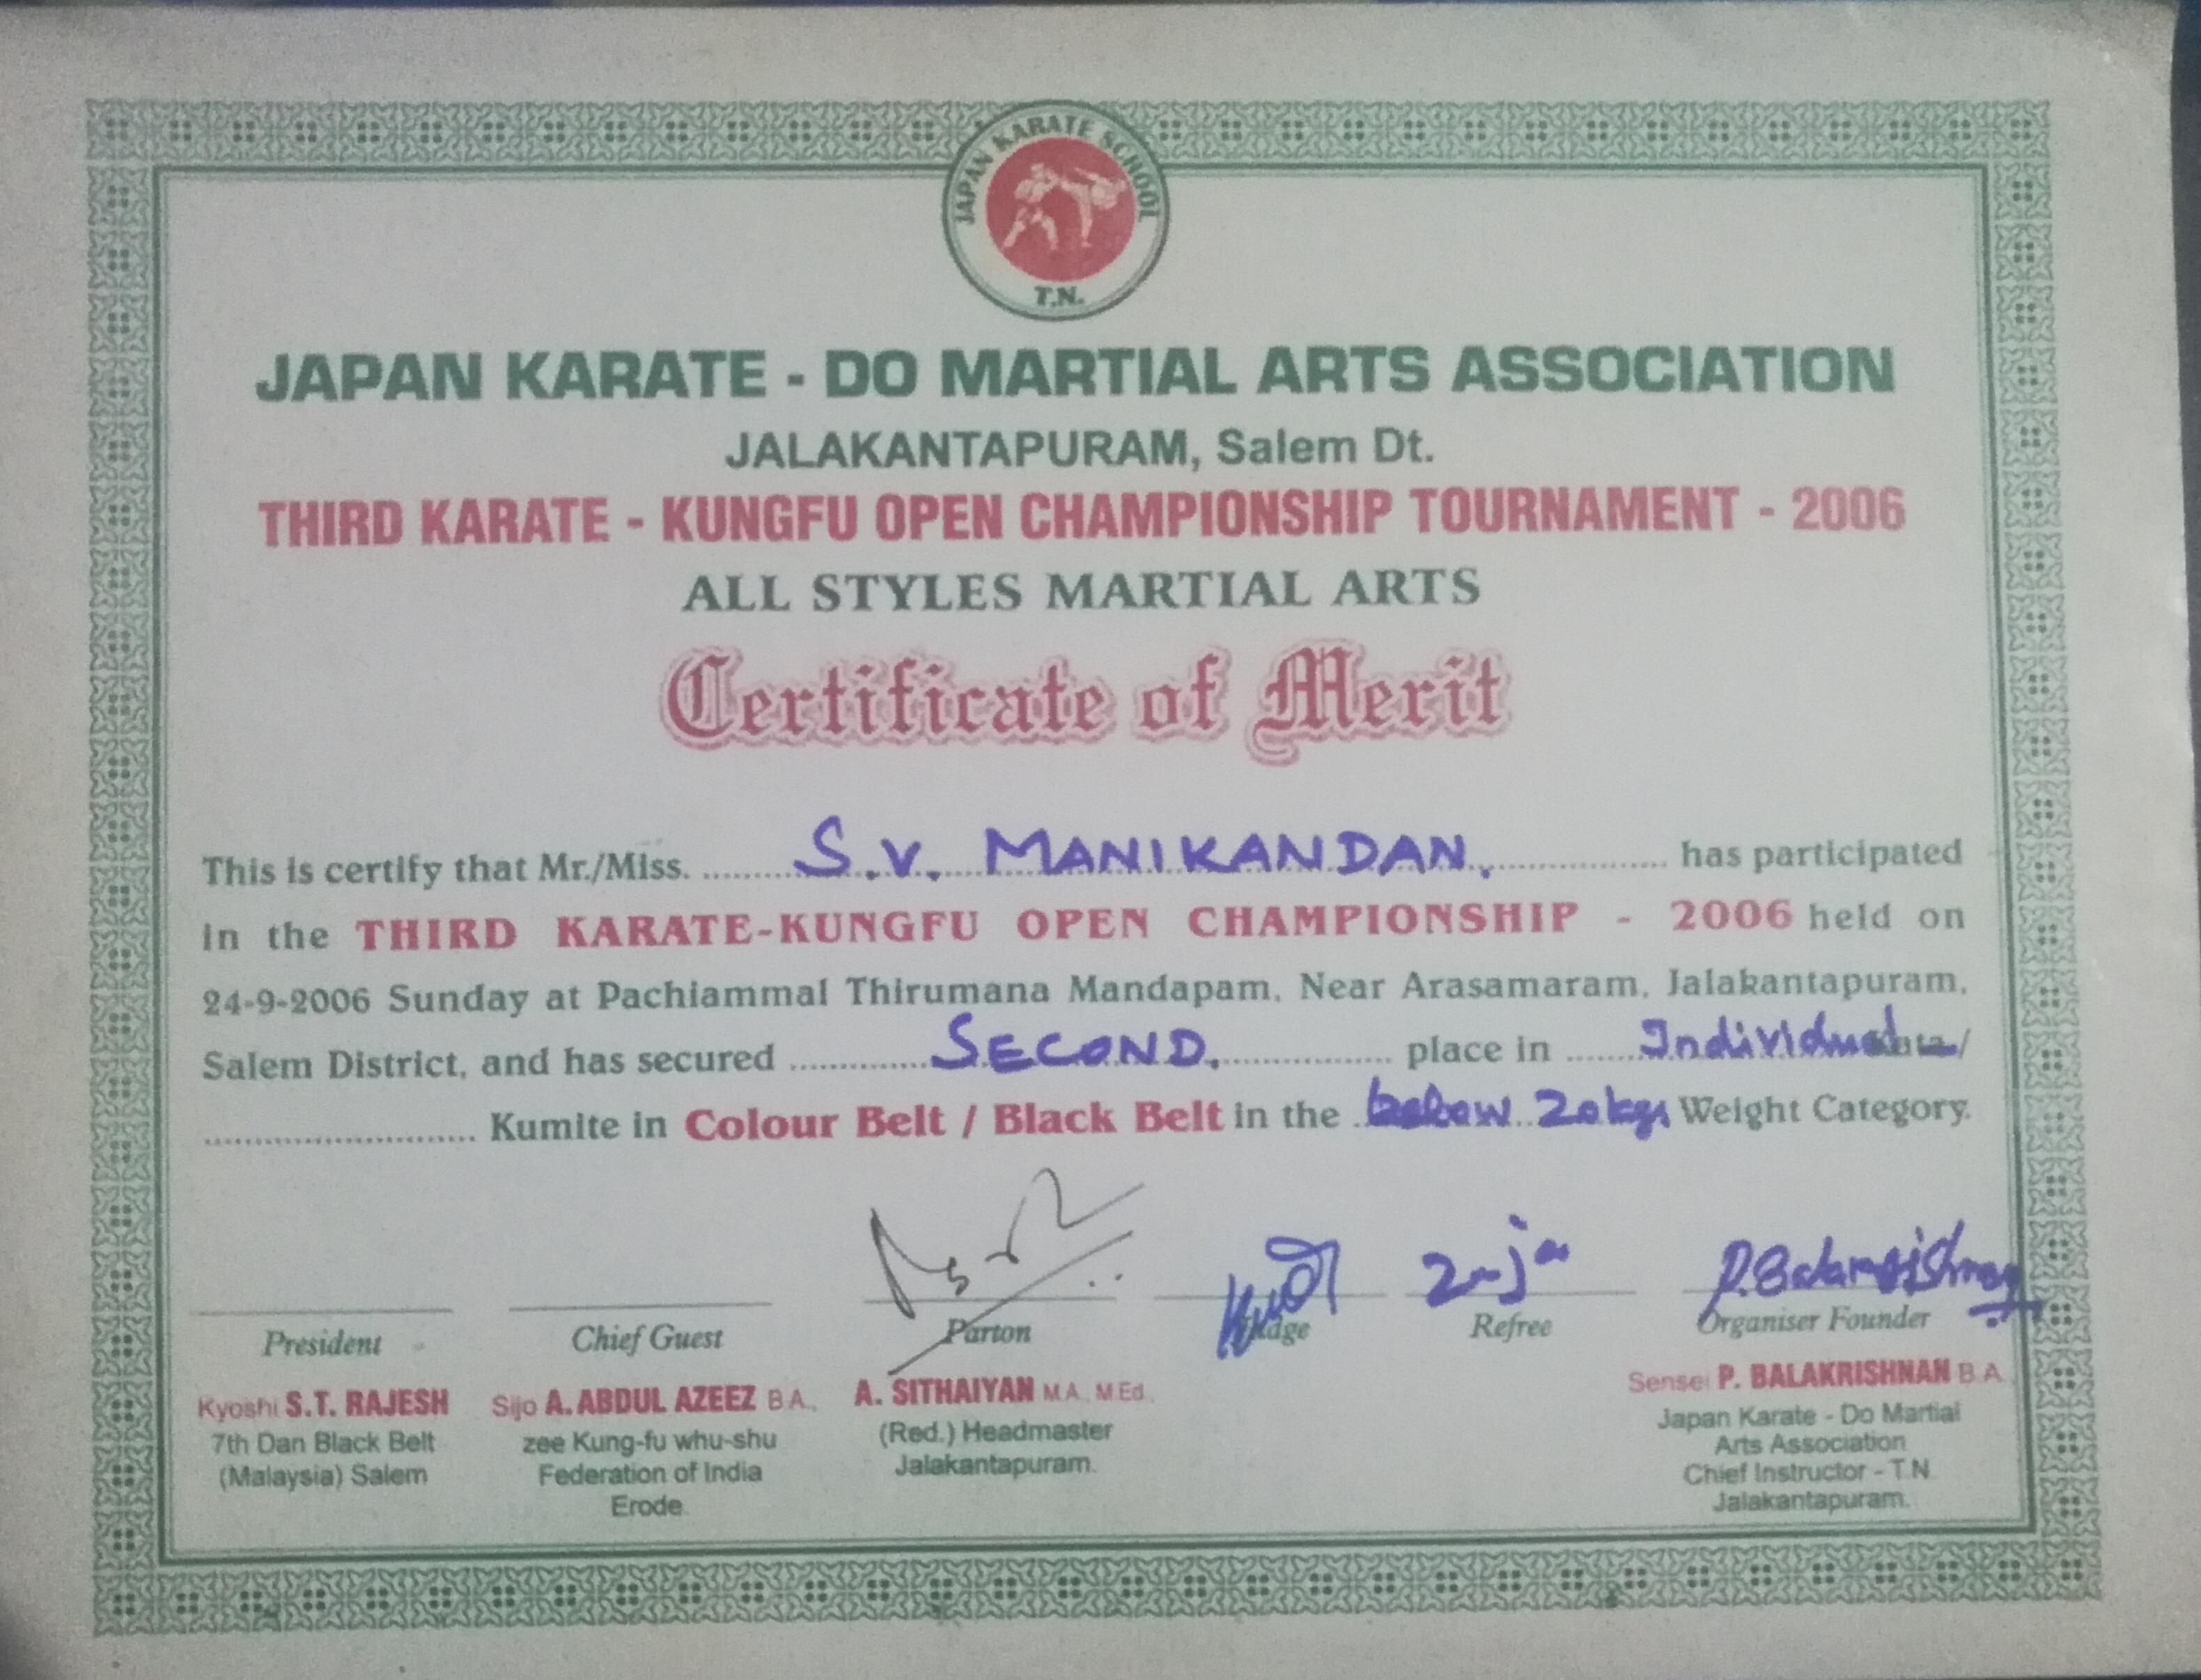 JAPAN KARATE SCHOOL
T.N.
JAPAN KARATE - DO MARTIAL ARTS ASSOCIATION
JALAKANTAPURAM, Salem Dt.
THIRD KARATE - KUNGFU OPEN CHAMPIONSHIP TOURNAMENT - 2006
ALL STYLES MARTIAL ARTS
Certificate of Merit
This is certify that Mr./Miss. S.V. MANIKANDAN. has participated
in the THIRD KARATE-KUNGFU OPEN CHAMPIONSHIP - 2006 held on
24-9-2006 Sunday at Pachiammal Thirumana Mandapam, Near Arasamaram, Jalakantapuram,
Salem District, and has secured SECOND. place in Individual /
Kumite in Colour Belt / Black Belt in the below 20kgs Weight Category.
P. Balakrishnan
President Chief Guest Parton Judge Refree Organiser Founder
Kyoshi S.T. RAJESH
7th Dan Black Belt
(Malaysia) Salem
Sijo A. ABDUL AZEEZ B.A.,
zee Kung-fu whu-shu
Federation of India
Erode.
A. SITHAIYAN M.A., M.Ed.,
(Red.) Headmaster
Jalakantapuram.
Sensei P. BALAKRISHNAN B.A.
Japan Karate - Do Martial
Arts Association
Chief Instructor - T.N.
Jalakantapuram.